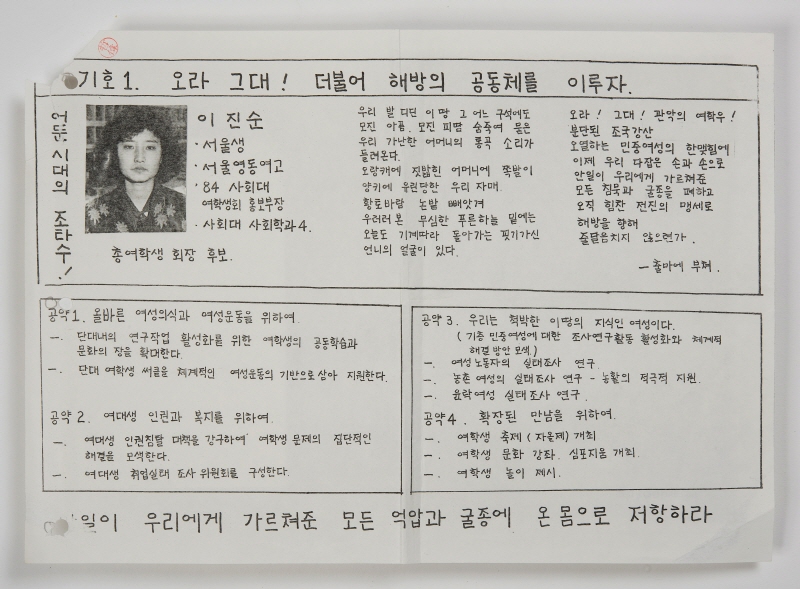 기호1. 오라 그대! 더불어 해방의 공동체를 이루자.
어둔 시대의 조타수!
이진순
·서울생
·서울영동여고
·'84 사회대
여학생회 홍보부장
·사회대 사회학과4.
총여학생 회장 후보.
우리 발 디딘 이 땅 그 어느 구석에도
모진 아픔, 모진 피땀 숨죽여 묻은
우리 가난한 어머니의 통곡 소리가
들려온다.
오랑캐에 짓밟힌 어머니에 쪽발이
양키에 유린당한 우리 자매
황토바람 논밭 빼앗겨
우러러 본 무심한 푸른하늘 밑에는
오늘도 기계따라 돌아가는 핏기가신
언니의 얼굴이 있다.
오라! 그대! 관악의 여학우!
분단된 조국강산
오열하는 민중여성의 한맺힘에
이제 우리 다잡은 손과 손으로
안일이 우리에게 가르쳐준
모든 침묵과 굴종을 폐하고
오직 힘찬 전진의 맹세로
해방을 향해
줄달음치지 않으련가.
— 출마에 부쳐.
공약1. 올바른 여성의식과 여성운동을 위하여.
一. 단대내의 연구작업 활성화를 위한 여학생의 공동학습과
문화의 장을 확대한다.
一. 단대 여학생 써클을 체계적인 여성운동의 기반으로 삼아 지원한다.
공약2. 여대생 인권과 복지를 위하여.
一. 여대생 인권침탈 대책을 강구하여 여학생 문제의 집단적인
해결을 모색한다.
一. 여대생 취업실태 조사 위원회를 구성한다.
공약3. 우리는 척박한 이땅의 지식인 여성이다.
(기층 민중여성에 대한 조사연구활동 활성화와 체계적
해결 방안 모색.)
一. 여성 노동자의 실태조사 연구.
一. 농촌 여성의 실태조사 연구 - 농활의 적극적 지원.
一. 윤락여성 실태조사 연구.
공약4. 확장된 만남을 위하여.
一. 여학생 축제 (자울제) 개최
一. 여학생 문화 강좌. 심포지움 개최.
一. 여학생 놀이 제시.
우리에게 가르쳐준 모든 억압과 굴종에 온몸으로 저항하라